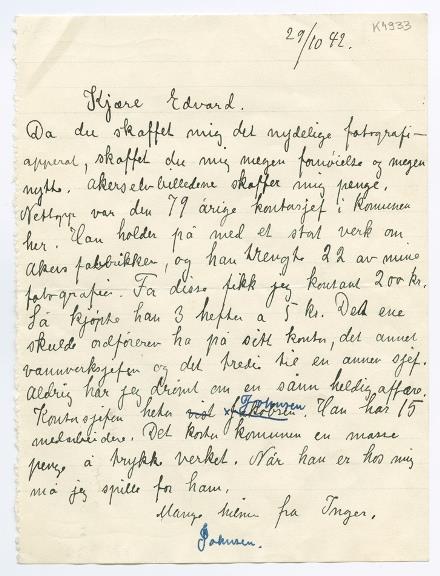 29/10 42.
K4933
Kjære Edvard.
Da du skaffet mig det nydelige fotografi-
apperat, skaffet du mig megen fornöielse og megen
nytte. Akerselvbilledene skaffer mig penge.
Nettopp var den 79 årige kontorsjef i Komunen
her. Han holder på med et stort verk om
Akers fabrikken, og han trengte 22 av mine
fotografier. Fa disse fikk jeg kontant 200 kr.
Så kjöpte han 3 hefter a 5 kr. Det ene
skulde ordföreren ha på sitt kontor, det annet
vannverksjefen og det tredie til en annen sjef.
Aldrig har jeg drömt om en sånn heldig affære.
Johnsen
Kontorsjefen heter vist Jakobsen. Han har 15
medarbeidere. Det koster komunen en masse
penge å trykke verket. Når han er hos mig
må jeg spille for ham.
Mange hilsner fra Inger.
Johnsen.